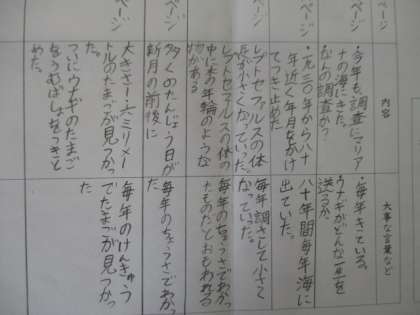 ページ
内容
大事な言葉など
・今年も調査にマリア
ナの海にきた。
なんの調査か?
・毎年きている。
ウナギがどんな一生を
送るか。
九三〇年から八十
年近く年月をかけ
てつき止めた
八十年間毎年海に
出ていた。
レプトセファルスの体の
小さくなっていった。
毎年調さして小さく
なっていた。
ページ
レプトセファルスの体の
中に木の年輪のような
物がある
毎年のちょうさでわかっ
たものだとおもわれる
ページ
多くのたんじょう日が
新月の前後に
毎年のちょうさでわかっ
た。
ページ
大きさ一.六ミリメー
トルのたまごが見つかっ
た。
ついにウナギのたまご
をうむばしょをつきと
めた。
毎年のけんきゅう
でたまごが見つかっ
た。